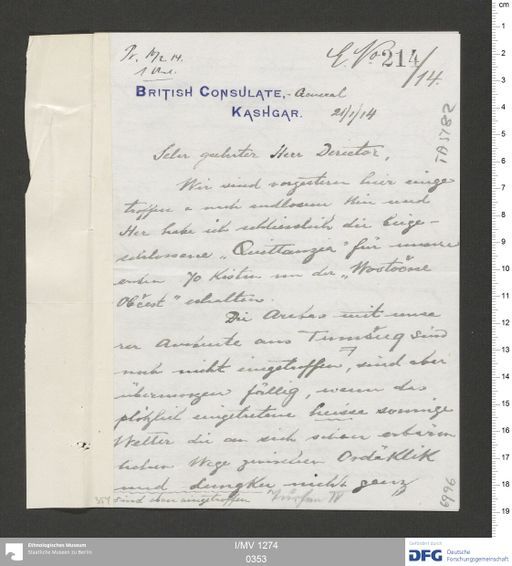 Pr. 14/2 14.
1 Anl.
E. No 214/14.
BRITISH CONSULATE,-General
KASHGAR. 21/1/14
IB 5782
Sehr geehrter Herr Director,
Wir sind vorgestern hier einge
troffen u. nach endlosem Hin und
Her habe ich schliesslich die beige-
schlossene „Quittanzen" für unsere
ersten 70 Kisten von der „Wostočne
Občest" erhalten.
Die Arebas mit unse
rer Ausbeute aus Tumšuq sind
noch nicht eingetroffen, sind aber
übermorgen fällig, wenn das
plötzlich eingetretene heisse sonnige
Wetter die an sich schon erbärm
lichen Wege zwischen Ordäklik
und Lungkar nicht ganz
sind eben eingetroffen
Turfan IV
354
6996
cm
1
2
3
4
5
6
7
8
9
10
11
12
13
14
15
16
17
18
19
Ethnologisches Museum
Staatliche Museen zu Berlin
I/MV 1274
0353
Gefördert durch
DFG Deutsche
Forschungsgemeinschaft